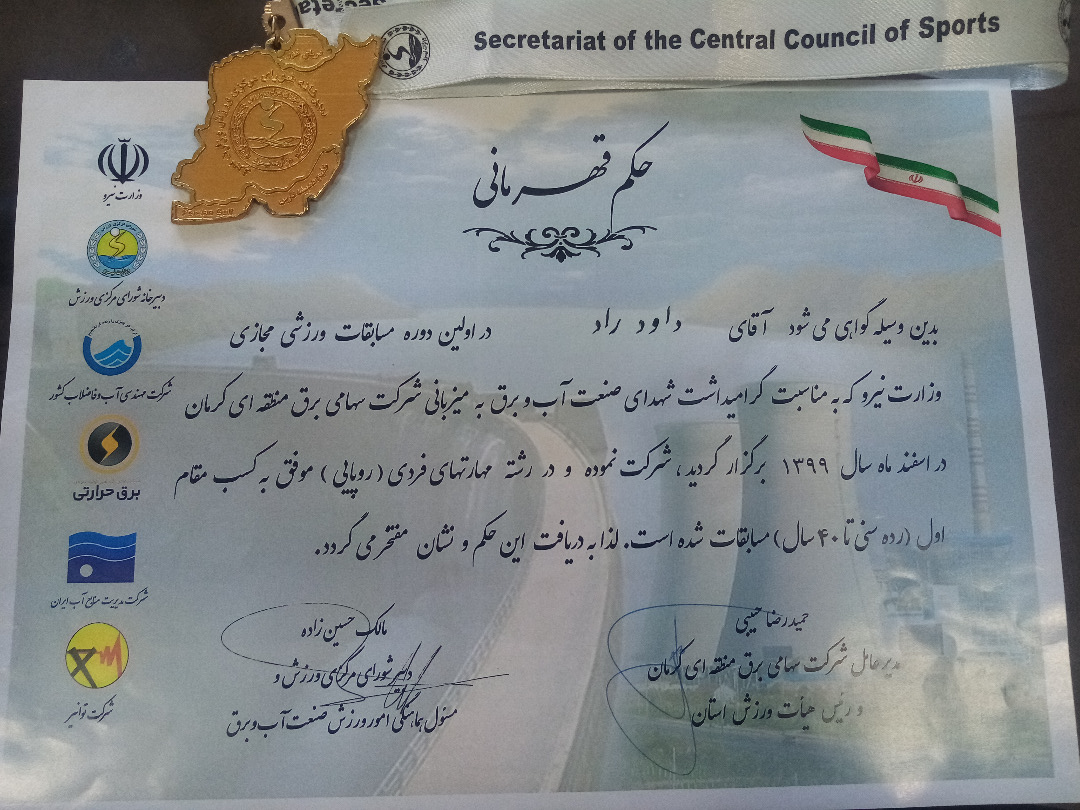 Secretariat of the Central Council of Sports
حکم قهرمانی
وزارت نیرو
دبیرخانه شورای مرکزی ورزش
شرکت مهندسی آب و فاضلاب کشور
برق حرارتی
شرکت مدیریت منابع آب ایران
شرکت توانیر
بدین وسیله گواهی می شود آقای داود راد در اولین دوره مسابقات ورزشی مجازی
وزارت نیرو که به مناسبت گرامیداشت شهدای صنعت آب و برق به میزبانی شرکت سهامی برق منطقه ای کرمان
در اسفند ماه سال ۱۳۹۹ برگزار گردید، شرکت نموده و در رشته مهارتهای فردی (روپایی) موفق به کسب مقام
اول (رده سنی تا ۴۰ سال) مسابقات شده است. لذا به دریافت این حکم و نشان مفتخر می گردد.
حمیدرضا حبیبی
مدیرعامل شرکت سهامی برق منطقه ای کرمان
و رئیس هیأت ورزش استان
مالک حسین زاده
دبیر شورای مرکزی ورزش و
مسئول هماهنگی امور ورزش صنعت آب و برق